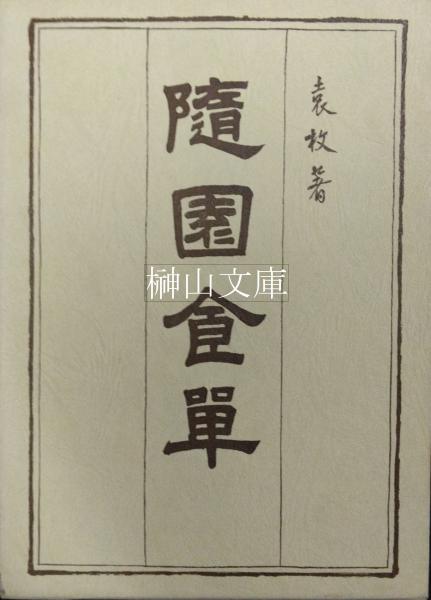 袁枚著
隨園食單
榊山文庫